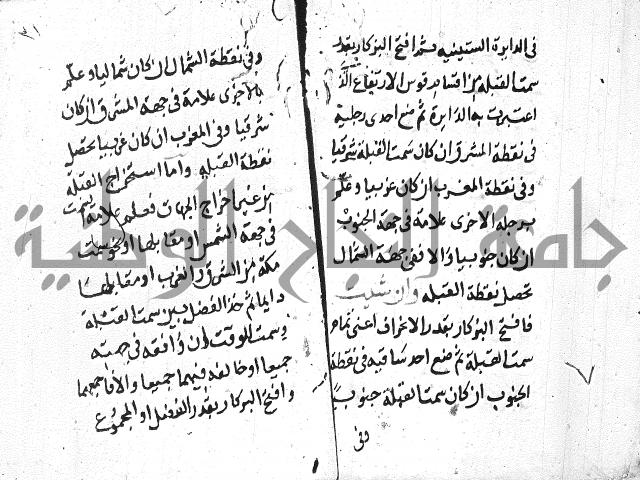 في الدايرة الستينيه ثم افتح البركار بقدر
سمت القبلة من اقسام قوس الارتفاع الذي
اعتبرت به الدايرة ثم ضع احدى رجليه
في نقطة المشرق ان كان سمت القبلة شرقيا
وفي نقطة المغرب ان كان غربيا وعلم
برجله الاخرى علامة في جهة الجنوب
ان كان جنوبيا والا ففي جهة الشمال
تحصل نقطة القبله وان شيت
فافتح البركار بقدر الانحراف اعني تمام
سمت القبلة ثم ضع احد ساقيه في نقطة
الجنوب ان كان سمت القبلة جنوبيا
وفي
٣١
وفي نقطة الشمال ان كان شماليا وعلم
بالاخرى علامة في جهة المشرق ان كان
شرقيا وفي المغرب ان كان غربيا تحصل
نقطة القبله واما استخراج القبلة
من غير اخراج الجهات فعلم علامة
في جهة الشمس او مقابلها
مكة من الشرق والغرب او مقابلهما
دايما ثم خذ الفضل بين سمت القبلة
وسمت الوقت ان وافقه في جهتيه
جميعا او خالفه فيهما جميعا والا فاجمعهما
وافتح البركار بقدر الفضل او المجموع
جامعة النجاح الوطنية